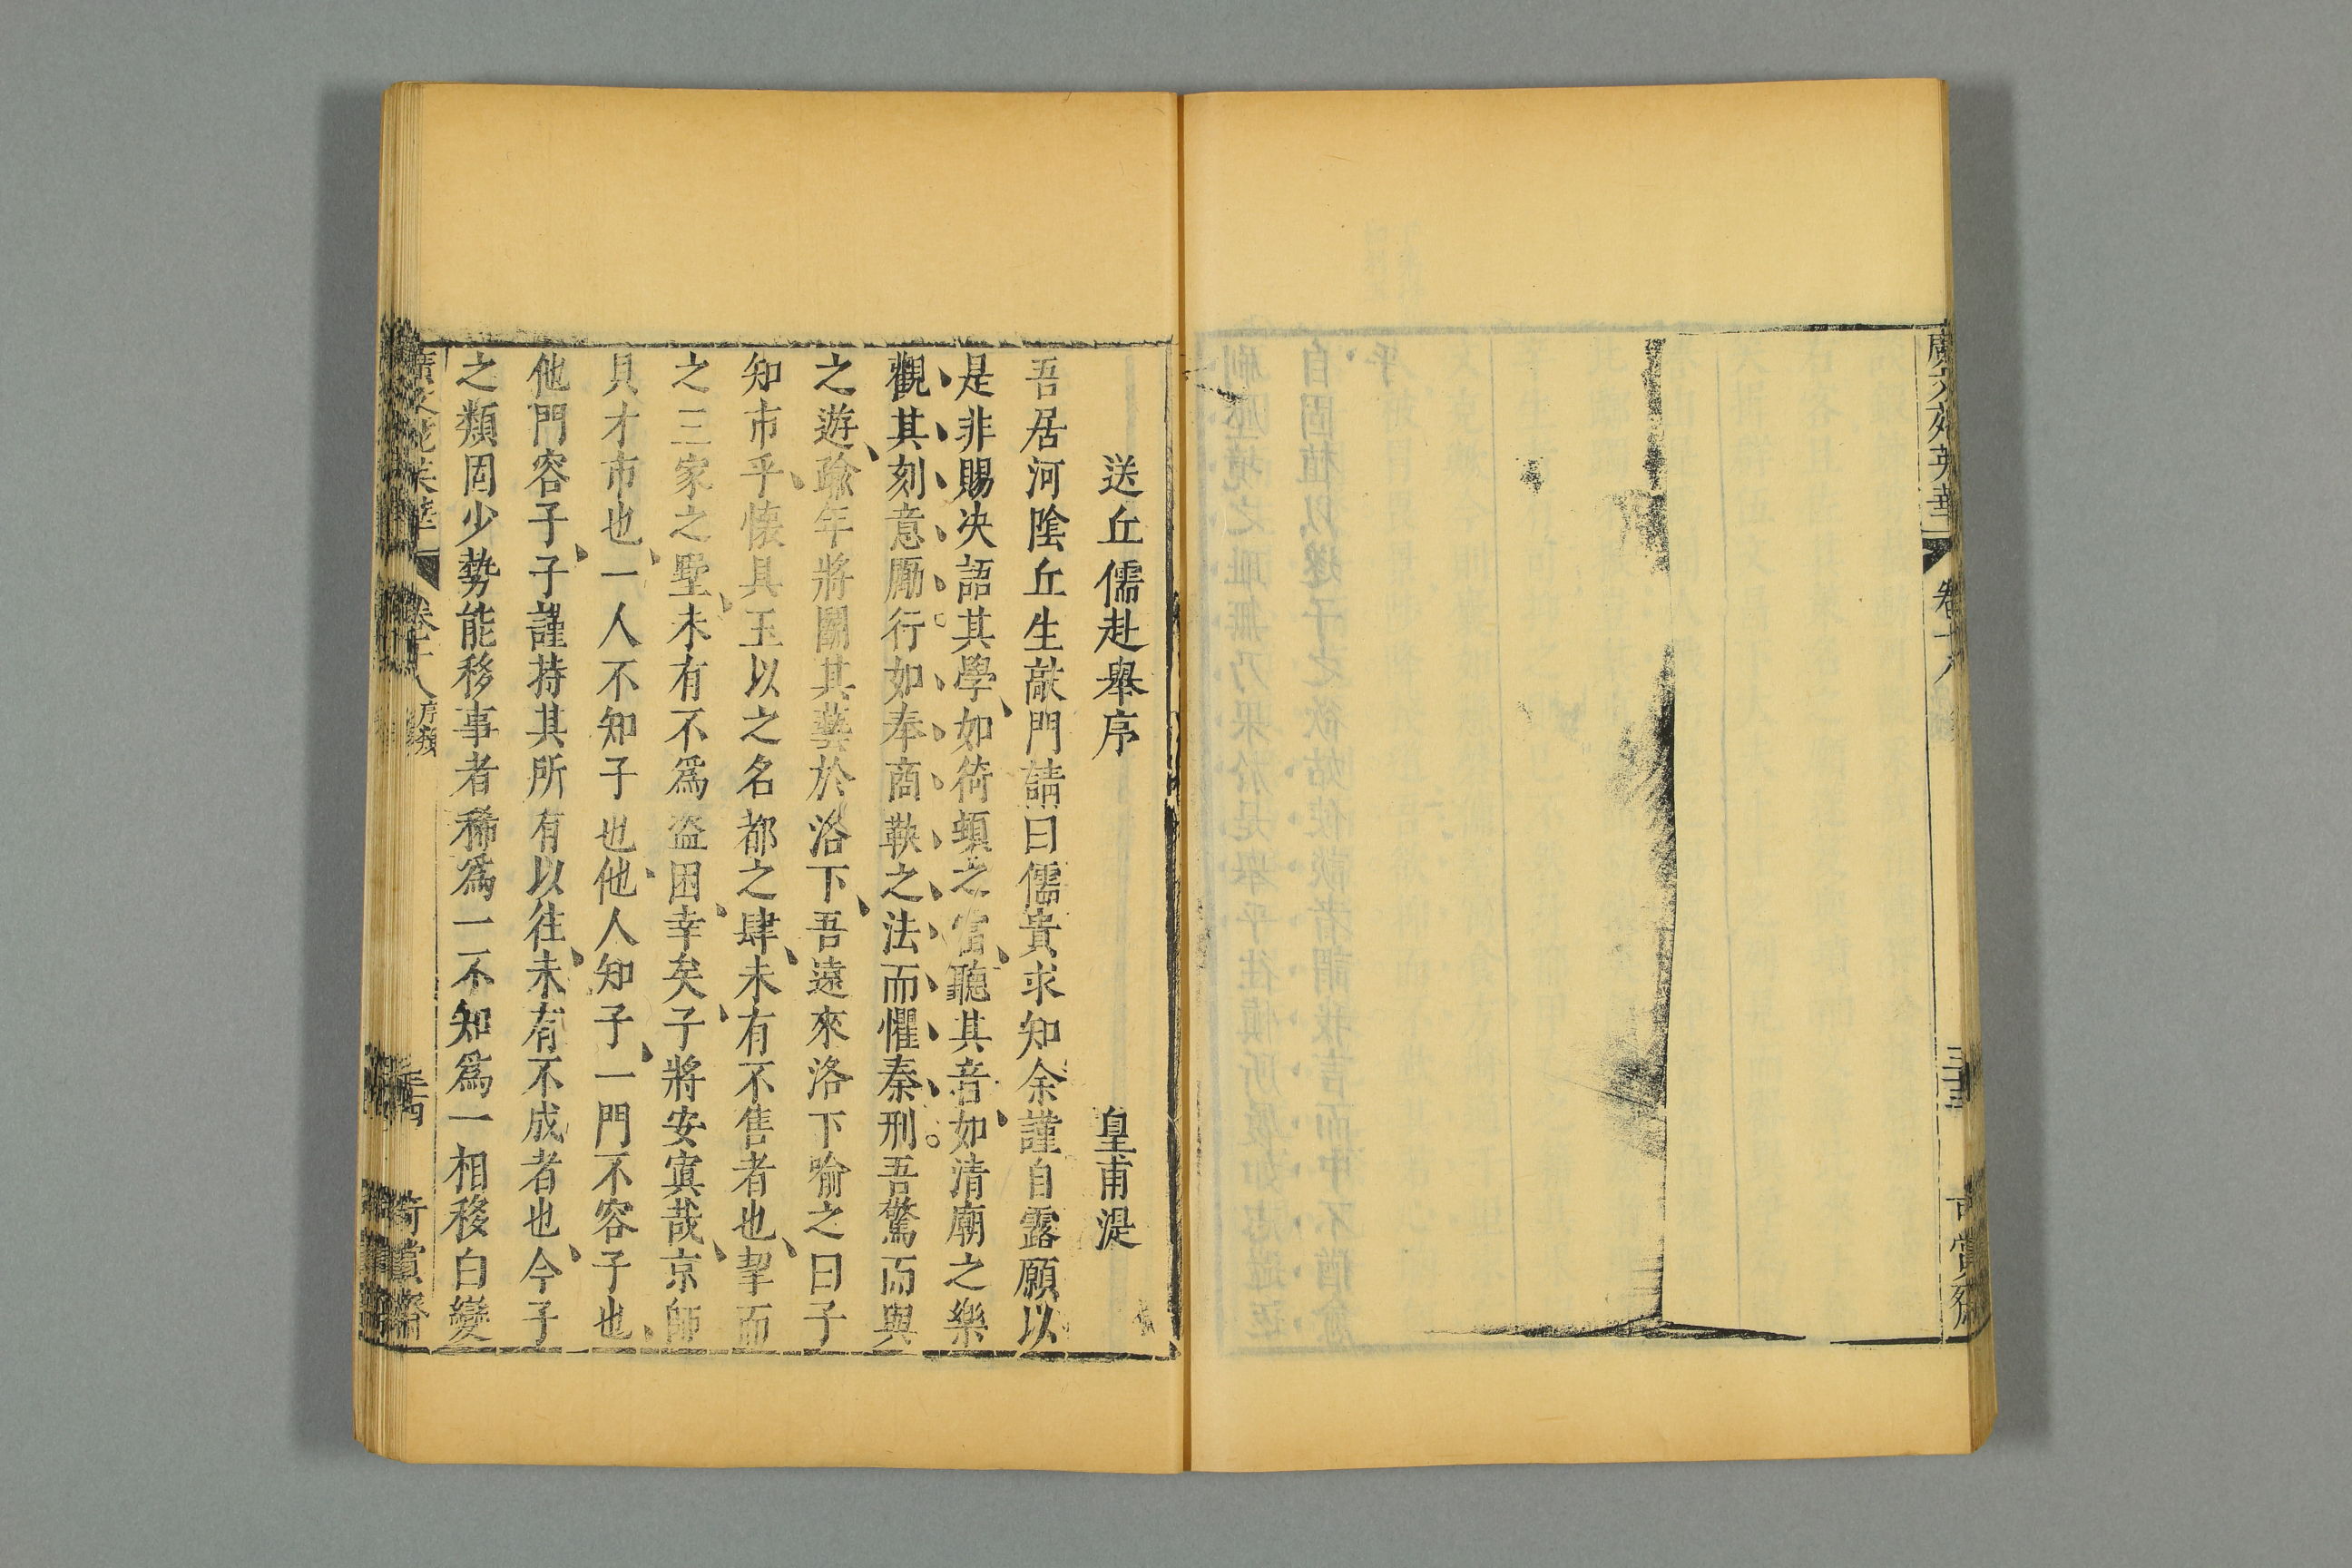 廣文苑英華
卷十八
三十三
賞
送丘儒赴舉序
皇甫湜
吾居河陰丘生敲門請曰儒貴求知余謹自露願以
是非賜决語其學如猗頓之富聽其音如清廟之樂
觀其刻意厲行如奉商鞅之法而懼秦刑吾驚而與
之遊踰年將鬭其藝於洛下吾遠來洛下喻之曰子
知市乎懷具玉以之名都之肆未有不售者也挈而
之三家之墅未有不爲盗困幸矣子將安寘哉京師
貝才市也一人不知子也他人知子一門不容子也
他門容子子謹持其所有以往未有不成者也今子
之類固少勢能移事者稀爲一不知爲一相移白變
廣文苑英華
卷十八
序類
三十四
倚賞齋